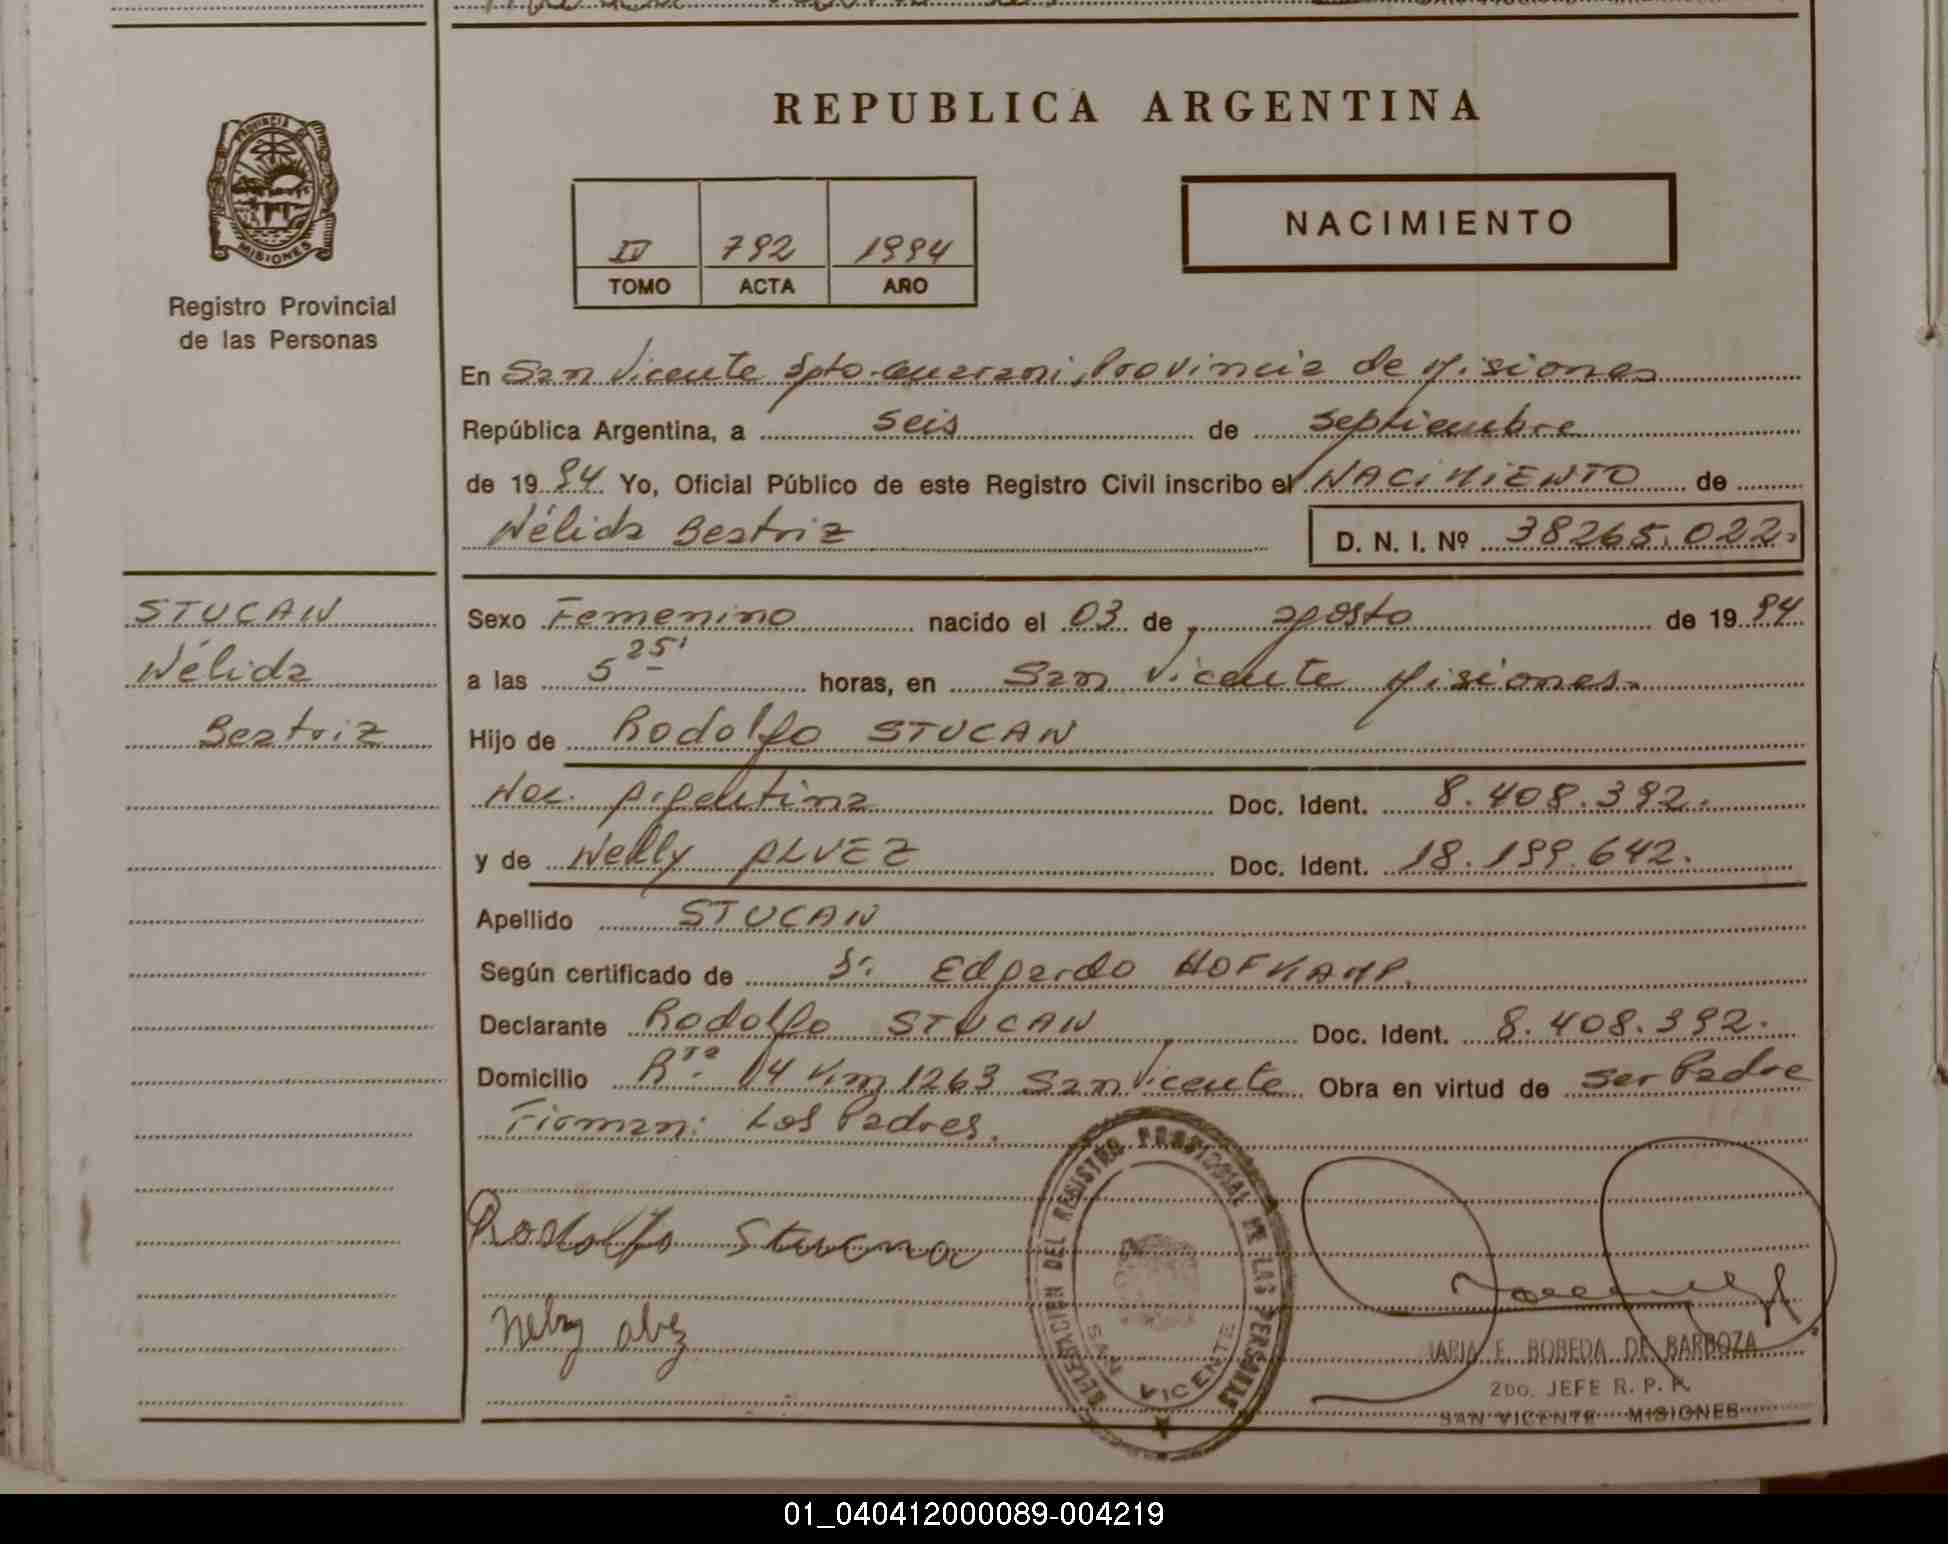 REPUBLICA ARGENTINA
PROVINCIA DE
MISIONES
Registro Provincial
de las Personas
IV 792 1994
TOMO ACTA AÑO
NACIMIENTO
En San Vicente Dpto. Guarani, Provincia de Misiones
República Argentina, a seis de septiembre
de 19 94 Yo, Oficial Público de este Registro Civil inscribo el NACIMIENTO de
Nélida Beatriz D. N. I. Nº 38265.022.
STUCAN
Nélida
Beatriz
Sexo Femenino nacido el 03 de agosto de 19 94
a las 5 25' horas, en San Vicente Misiones.
Hijo de Rodolfo STUCAN
Nac. Argentina Doc. Ident. 8.408.392.
y de Nelly ALVEZ Doc. Ident. 18.199.642.
Apellido STUCAN
Según certificado de Dr. Edgardo HOFKAMP.
Declarante Rodolfo STUCAN Doc. Ident. 8.408.392.
Domicilio Rta. 14 Km 1263 San Vicente Obra en virtud de ser Padre
Firman: Los Padres.
Rodolfo
Nelly alvez
DELEGACION DEL REGISTRO PROVINCIAL DE LAS PERSONAS
SAN VICENTE
MARIA E. BOBEDA DE BARBOZA
2DO. JEFE R. P. P.
SAN VICENTE MISIONES
01_040412000089-004219